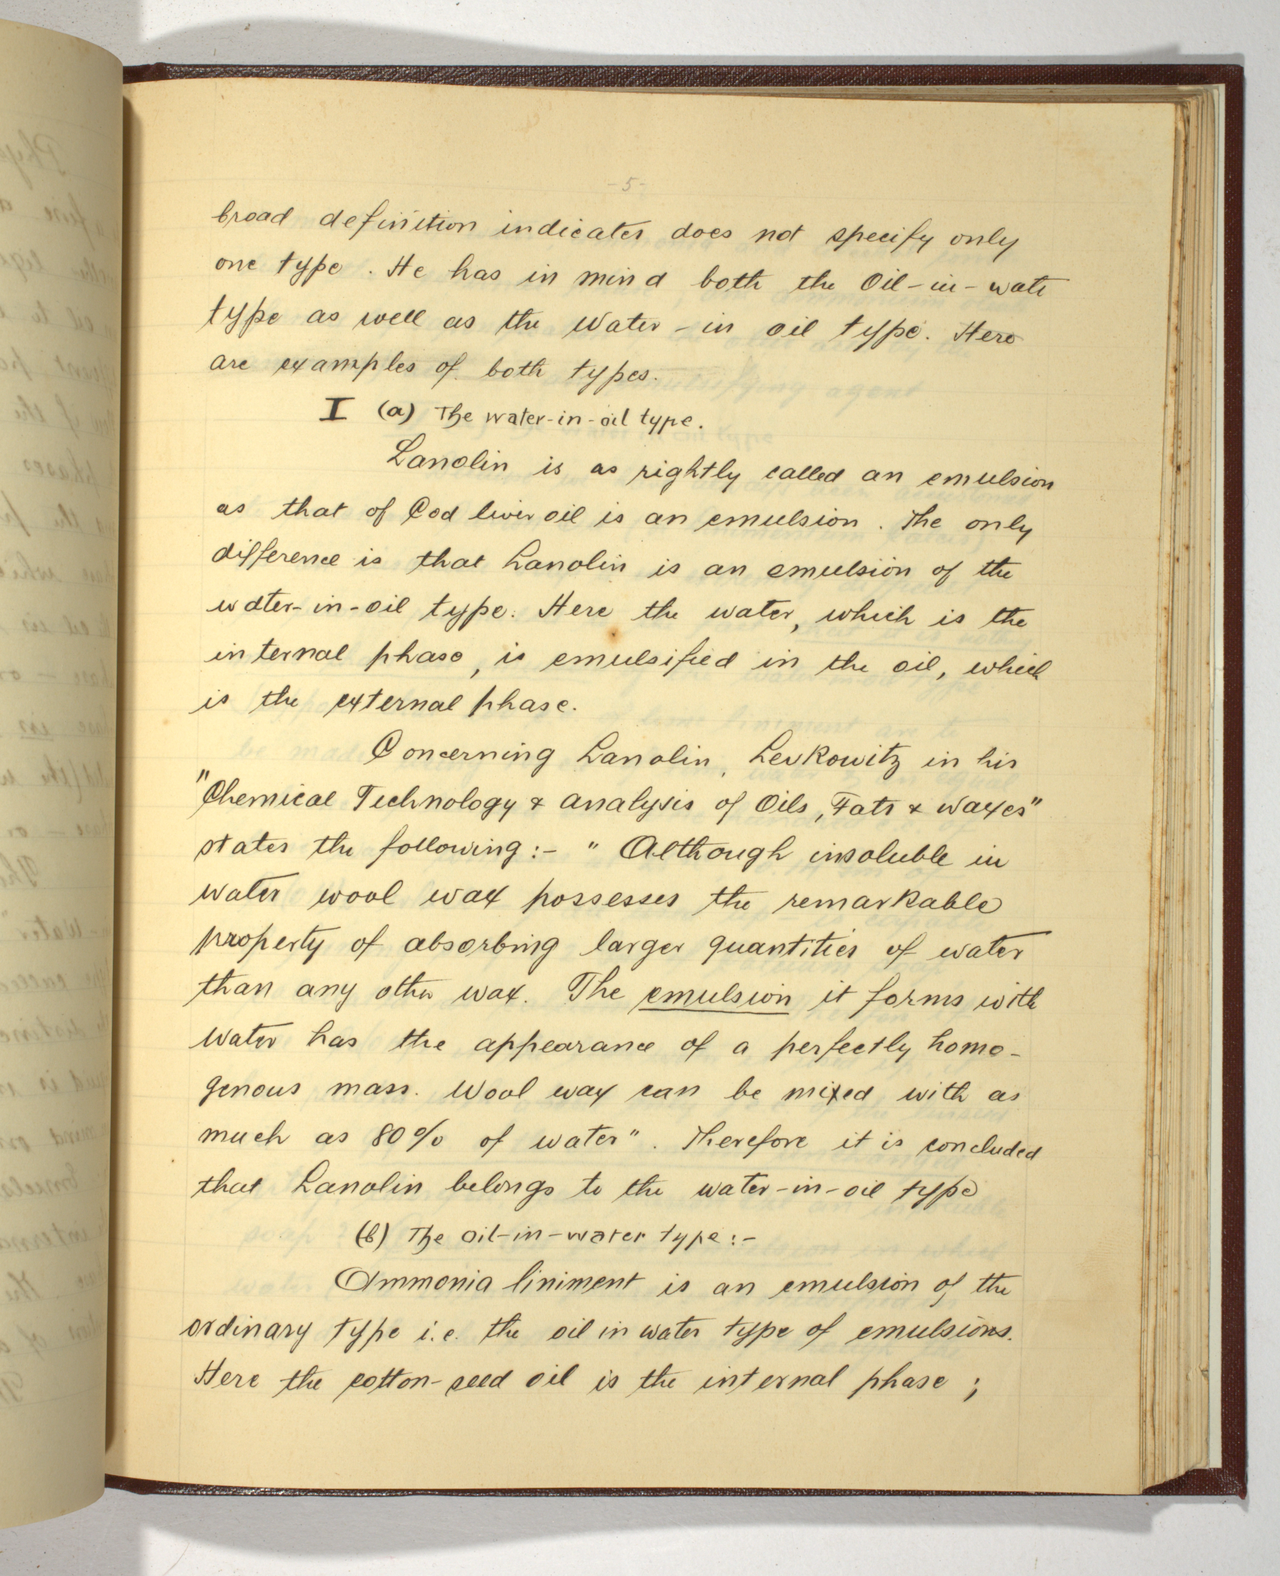 -5-
broad definition indicates does not specify only
one type. He has in mind both the Oil-in-wate
type as well as the Water-in oil type. Here
are examples of both types.
I (a) The water-in-oil type.
Lanolin is as rightly called an emulsion
as that of Cod liver oil is an emulsion. The only
difference is that Lanolin is an emulsion of the
water-in-oil type. Here the water, which is the
internal phase, is emulsified in the oil, which
is the external phase.
Concerning Lanolin, Levkowitz in his
"Chemical Technology & analysis of Oils, Fats & waxes"
states the following:- "Although insoluble in
water wool wax possesses the remarkable
property of absorbing larger quantities of water
than any other wax. The emulsion it forms with
water has the appearance of a perfectly homo-
genous mass. Wool wax can be mixed with as
much as 80% of water". Therefore it is concluded
that Lanolin belongs to the water-in-oil type
(b) The oil-in-water type:-
Ammonia liniment is an emulsion of the
ordinary type i.e. the oil in water type of emulsions.
Here the cotton-seed oil is the internal phase;